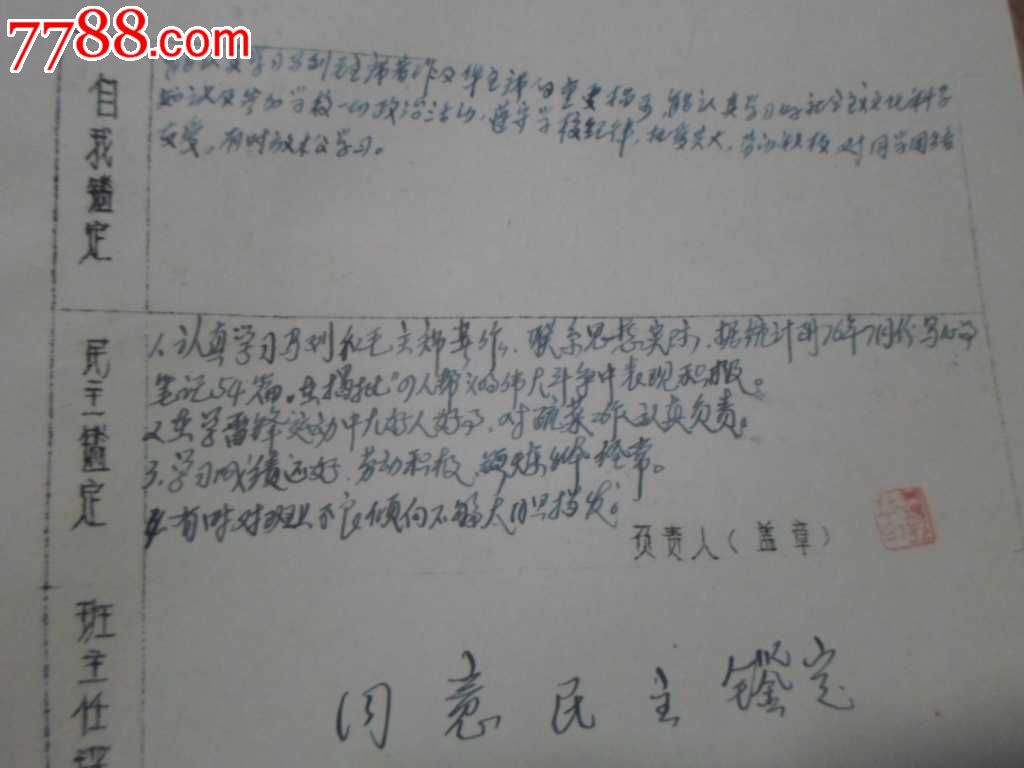 7788.com
中国收藏热线
自我鉴定
能认真学习马列毛主席著作及华主席的重要指示,能认真学习好社会主义文化科学
知识及参加学校一切政治活动,遵守学校纪律,批 劳动积极,对同学团结
友爱。有时放松学习。
民主鉴定
1.认真学习马列和毛主席著作,联系思想实际,据统计到76年7月份写心得
笔记54篇。在揭批"四人帮"的伟大斗争中表现积极。
2.在学雷锋运动中大好人好事,对蔬菜工作认真负责。
3.学习成绩还好,劳动积极,锻炼身体经常。
4.有时对班上不良倾向不够大胆揭发。
负责人(盖章)
班主任评
同意民主鉴定